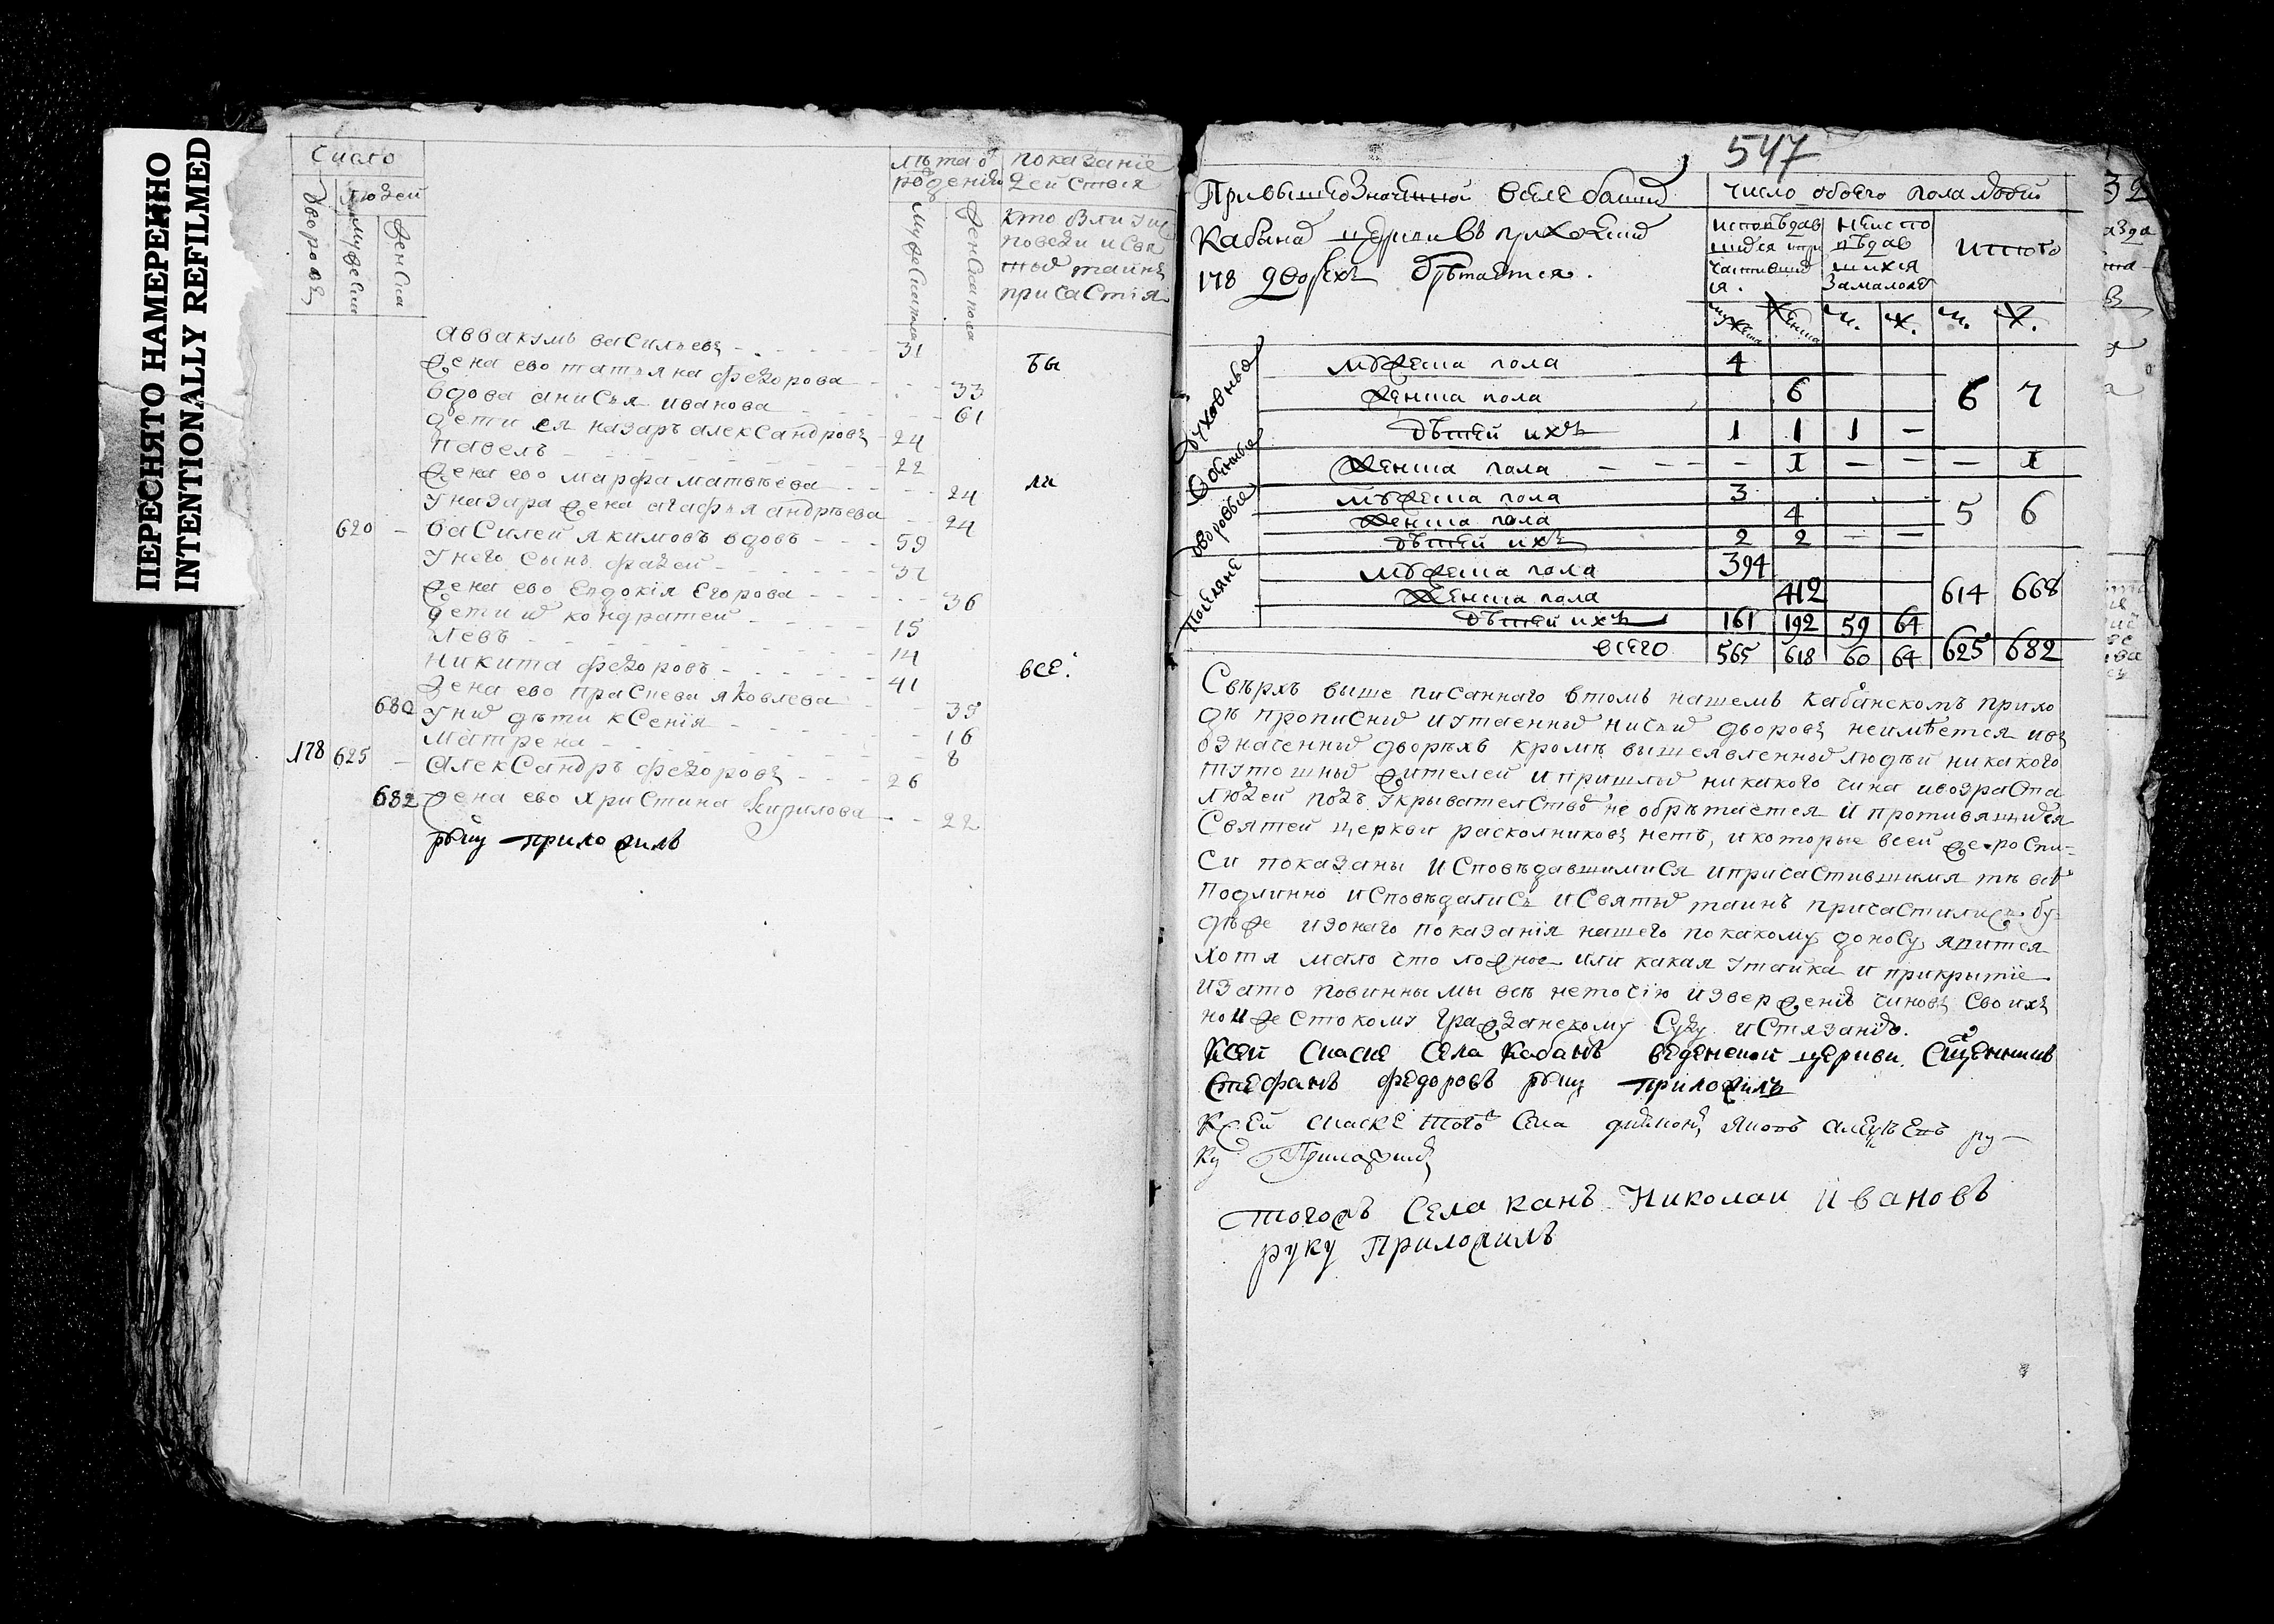 ПЕРЕСНЯТО НАМЕРЕННО
INTENTIONALLY REFILMED
Число
людей
дворовъ
мужеска
женска
лѣта о
рожденiю
мужеска пола
женска пола
показанiе
дей ствия
кто былъ у ис
поведи и свя
тыхъ таинъ
причастiя
аввакумъ васильевъ 31
жена ево татьяна федорова 33
бы
вдова анисья иванова 61
дети ея назаръ александровъ 24
павелъ 22
жена ево марфа матвѣева 24
ли
у назара жена агафья андрѣева 24
620 василей якимовъ вдовъ 59
у него сынъ фадей 37
жена ево евдокiя егорова 36
дети их кондратей 15
левъ 14
никита федоровъ 41
все
жена ево прасковья яковлева 35
680 у них дѣти ксенiя 16
матрена 8
178 625 александръ федоровъ 26
682 жена ево христина кирилова 22
руку приложилъ
547
При вышеозначенной в селе
Кабанах церкви въ приходских
178 дворехъ обретается
число обоего пола людей
исповѣдав
шихся и при
частивших
ся
неиспо
вѣдав
шихся
за малолет
итого
мужеска женска м. ж. м. ж.
духовные
мужеска пола 4
женска пола 6 6 7
дѣтей ихъ 1 1 1 —
женска пола — 1 — — — 1
дворовые
мужеска пола 3
женска пола 4 5 6
дѣтей ихъ 2 2 — —
поселяне
мужеска пола 394
женска пола 412 614 668
дѣтей ихъ 161 192 59 64
всего 565 618 60 64 625 682
Свѣрхъ выше писаннаго в томъ нашемъ кабанскомъ прихо
дѣ прописныхъ и утаенныхъ ничьихъ дворовъ неимѣется и въ
означенныхъ дворѣхъ кромѣ вышеявленныхъ людей никакого
тутошныхъ жителей и пришлыхъ никакого чина и возраста
людей подъ укрывателствомъ не обрѣтается и противящихся
Святей церкви расколниковъ нетъ, и которые в сей же роспи-
си показаны исповѣдавшимися и причастившимися тѣ все
подлинно исповѣдались и святыхъ таинъ причастились бу-
дѣже из онаго показанiя нашего по какому доносу явится
хотя мало что ложное или какая утайка и прикрытiе
и за то повинны мы все неточiю извержению чиновъ своихъ
но и жестокому гражданскому суду и истязанiю.
К сей скаске села кабанъ веденской церкви священникъ
стефанъ федоровъ руку приложилъ
К сей скаске того села дьяконъ яковъ алексѣевъ ру-
ку приложилъ
тогожъ села канъ Николаи Ивановъ
руку приложилъ